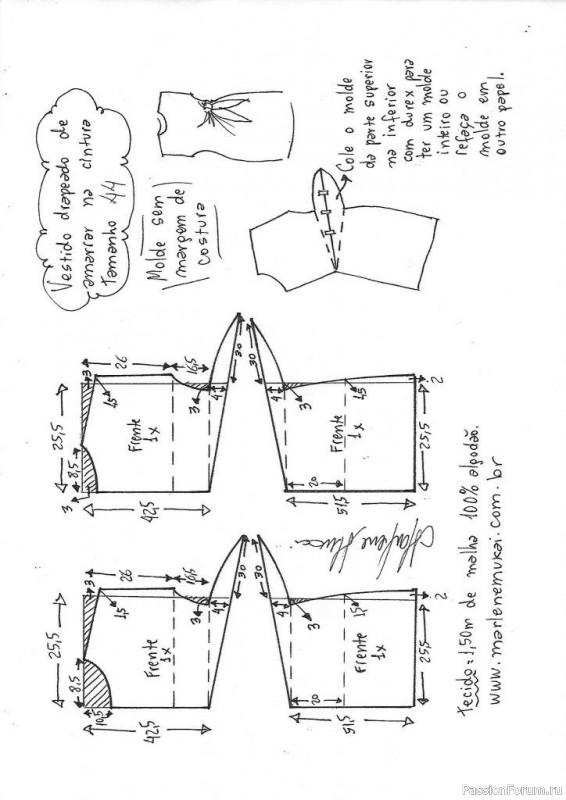 Vestido drapeado de
amarrar na cintura
Tamanho 44
Molde sem
margem de
costura
Cole o molde
da parte superior
na inferior
com durex para
ter um molde
inteiro ou
refaça o
molde em
outro papel.
26
16,5
3
1,5
25,5
8,5
3
Frente
1x
3
4
30
42,5
30
4
3
1,5
2
Frente
1x
20
25,5
51,5
26
16,5
3
1,5
25,5
8,5
10,5
Frente
1x
3
4
30
42,5
30
4
3
1,5
2
Frente
1x
20
25,5
51,5
Tecido = 1,50m de malha 100% algodão.
www.marlenemukai.com.br
PassionForum.ru